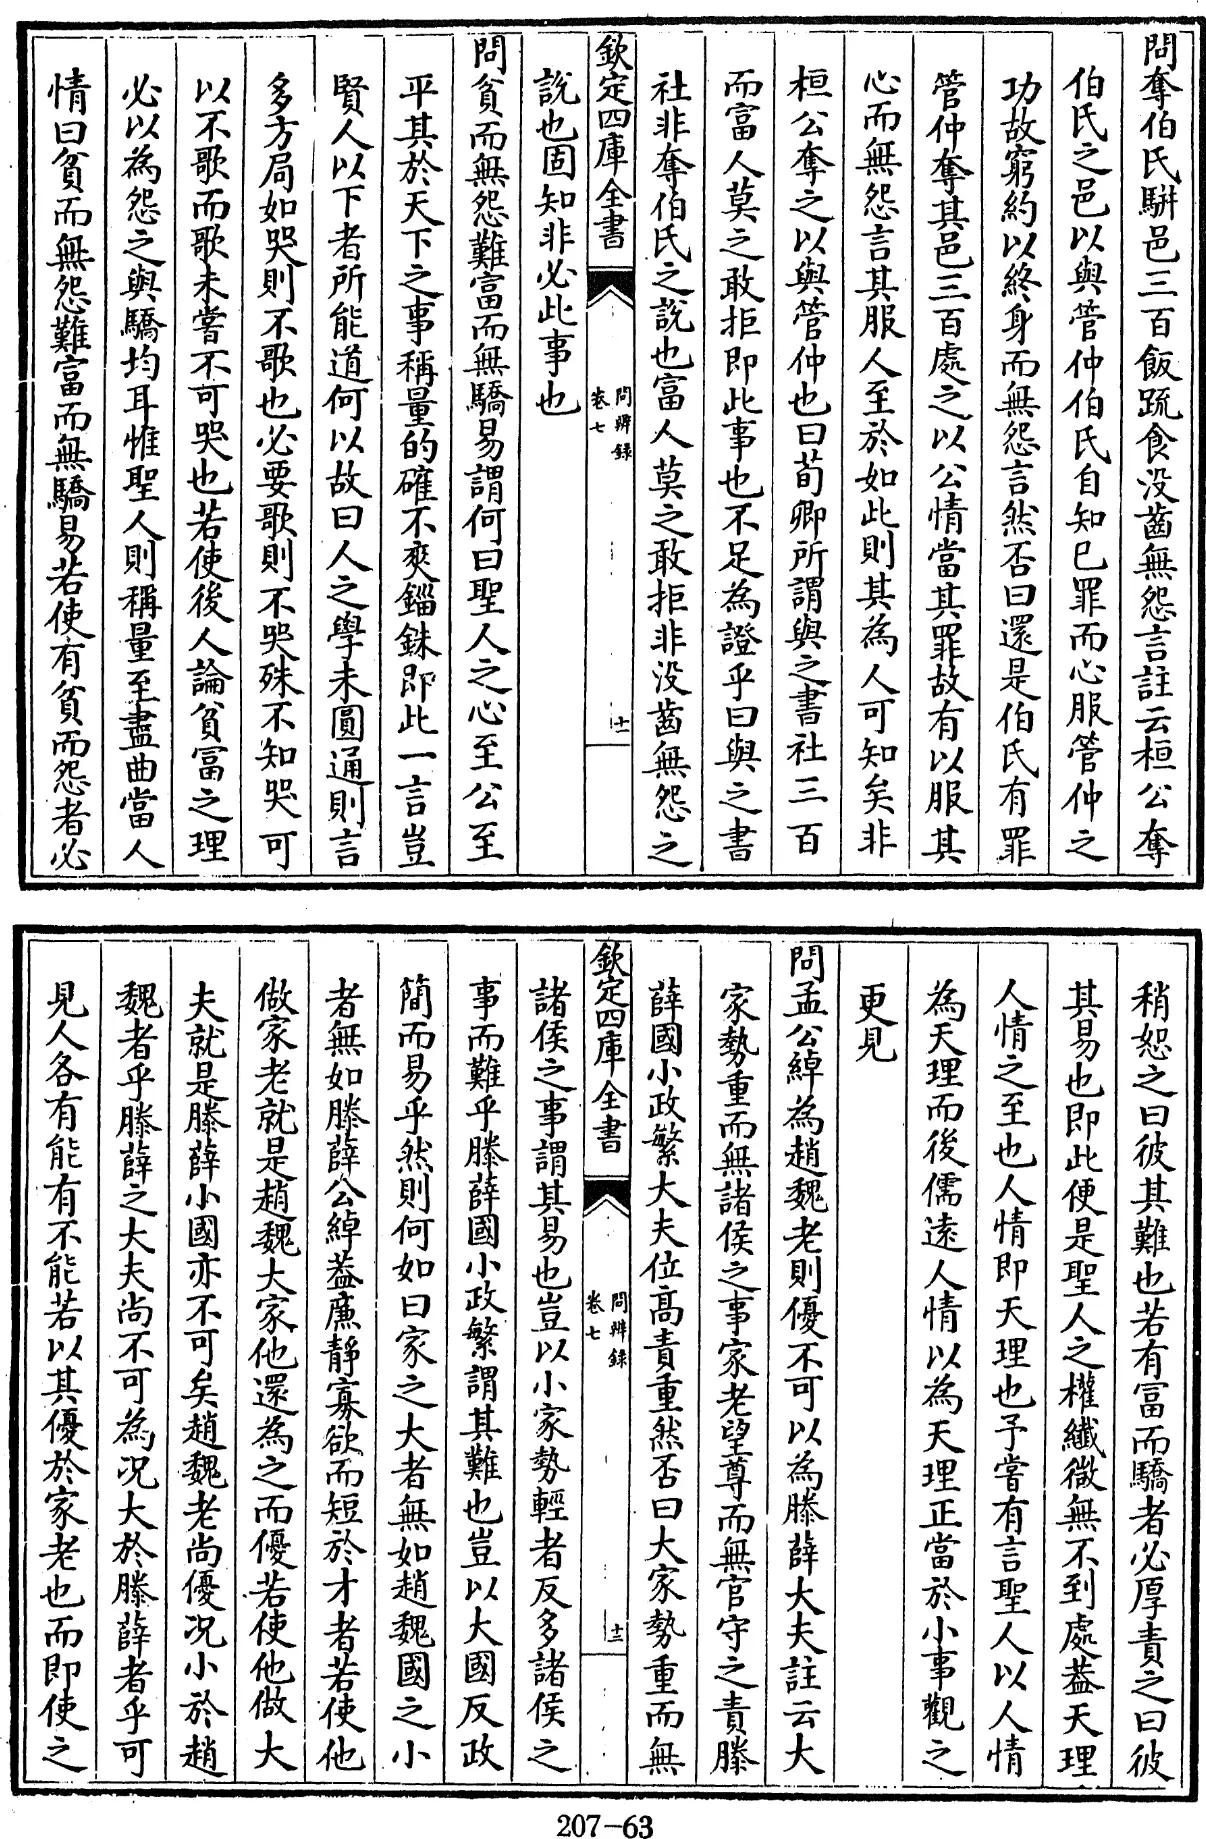 問奪伯氏駢邑三百飯疏食没齒無怨言註云桓公奪
伯氏之邑以與管仲伯氏自知已罪而心服管仲之
功故窮約以終身而無怨言然否曰還是伯氏有罪
管仲奪其邑三百處之以公情當其罪故有以服其
心而無怨言其服人至於如此則其為人可知矣非
桓公奪之以與管仲也曰荀卿所謂與之書社三百
而富人莫之敢拒即此事也不足為證乎曰與之書
社非奪伯氏之說也富人莫之敢拒非没齒無怨之
欽定四庫全書
問辨録
卷七
十一
說也固知非必此事也
問貧而無怨難富而無驕易謂何曰聖人之心至公至
平其於天下之事稱量的確不爽錙銖即此一言豈
賢人以下者所能道何以故曰人之學未圓通則言
多方局如哭則不歌也必要歌則不哭殊不知哭可
以不歌而歌未嘗不可哭也若使後人論貧富之理
必以為怨之與驕均耳惟聖人則稱量至盡曲當人
情曰貧而無怨難富而無驕易若使有貧而怨者必
稍恕之曰彼其難也若有富而驕者必厚責之曰彼
其易也即此便是聖人之權纖微無不到處葢天理
人情之至也人情即天理也予嘗有言聖人以人情
為天理而後儒遠人情以為天理正當於小事觀之
更見
問孟公綽為趙魏老則優不可以為滕薛大夫註云大
家勢重而無諸侯之事家老望尊而無官守之責滕
薛國小政繁大夫位高責重然否曰大家勢重而無
欽定四庫全書
問辨録
卷七
十二
諸侯之事謂其易也豈以小家勢輕者反多諸侯之
事而難乎滕薛國小政繁謂其難也豈以大國反政
簡而易乎然則何如曰家之大者無如趙魏國之小
者無如滕薛公綽葢廉靜寡欲而短於才者若使他
做家老就是趙魏大家他還為之而優若使他做大
夫就是滕薛小國亦不可矣趙魏老尚優况小於趙
魏者乎滕薛之大夫尚不可為况大於滕薛者乎可
見人各有能有不能若以其優於家老也而即使之
207-63